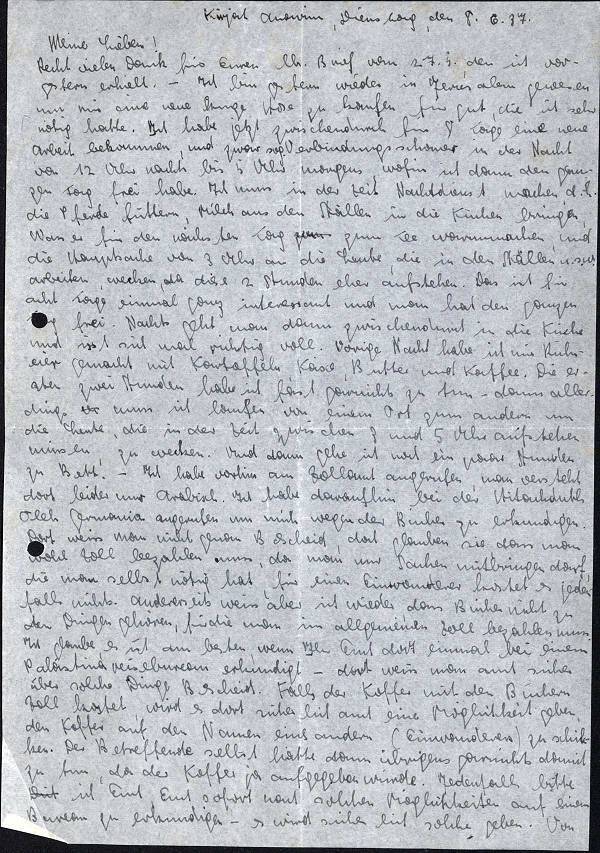 Kirjath Anavim, Dienstag, den 8. 6. 37.
Meine Lieben!
Recht vielen Dank für Euren lb. Brief vom 27.5. den ich vor-
gestern erhielt. – Ich bin gestern wieder in Jerusalem gewesen
um mir eine neue lange Hose zu kaufen für gut, die ich sehr
nötig hatte. Ich habe jetzt zwischendurch für 8 Tage eine neue
Arbeit bekommen, und zwar in der Nacht
von 12 Uhr nachts bis 5 Uhr morgens, wofür ich dann den gan-
zen Tag frei habe. Ich muss in der Zeit Nachtdienst machen d.h.
die Pferde füttern, Milch aus den Ställen in die Küchen bringen,
Wasser für den nächsten Tag zum Tee warmmachen, und
die Hauptsache von 3 Uhr an die Leute, die in den Ställen u.s.w.
arbeiten, wecken, da diese 2 Stunden eher aufstehen. Das ist für
acht Tage einmal ganz interessant und man hat den ganzen
Tag frei. Nachts geht man dann zwischendurch in die Küche
und isst sich man richtig voll. Vorige Nacht habe ich mir Rühr-
eier gemacht mit Kartoffeln Käse, Butter und Kaffee. Die er-
sten zwei Stunden habe ich fast garnichts zu tun – dann aller-
dings muss ich laufen von einem Ort zum andern um
die Leute, die in der Zeit zwischen 3 und 5 Uhr aufstehen
müssen, zu wecken. Und dann gehe ich noch ein paar Stunden
zu Bett. – Ich habe vorhin am Zollamt angerufen, man versteht
dort leider nur Arabisch. Ich habe daraufhin bei der Hitachduth
Olej Germania angerufen um mich wegen der Bücher zu erkundigen.
Dort weiss man nicht genau Bescheid, dort glauben sie dass man
wohl Zoll bezahlen muss, da man nur Sachen mitbringen darf,
die man selbst nötig hat, für einen Einwanderer kostet es jeden-
falls nichts. Andererseits weiss aber ich wieder dass Bücher nicht zu
den Dingen gehören, für die man im allgemeinen Zoll bezahlen muss.
Ich glaube es ist am besten wenn Ihr Euch dort einmal bei einem
Palästinareisebureau erkundigt – dort weiss man auch sicher
über solche Dinge Bescheid. Falls der Koffer mit den Büchern
Zoll kostet, wird es dort sicherlich auch eine Möglichkeit geben,
den Koffer auf den Namen eines andern (Einwanderers) zu schik-
ken. Der Betreffende selbst hätte dann übrigens garnichts damit
zu tun, da der Koffer ja aufgegeben würde. Jedenfalls bitte
ich Euch Euch sofort nach solchen Möglichkeiten auf einem
Bureau zu erkundigen – es wird sicherlich solche geben. Von